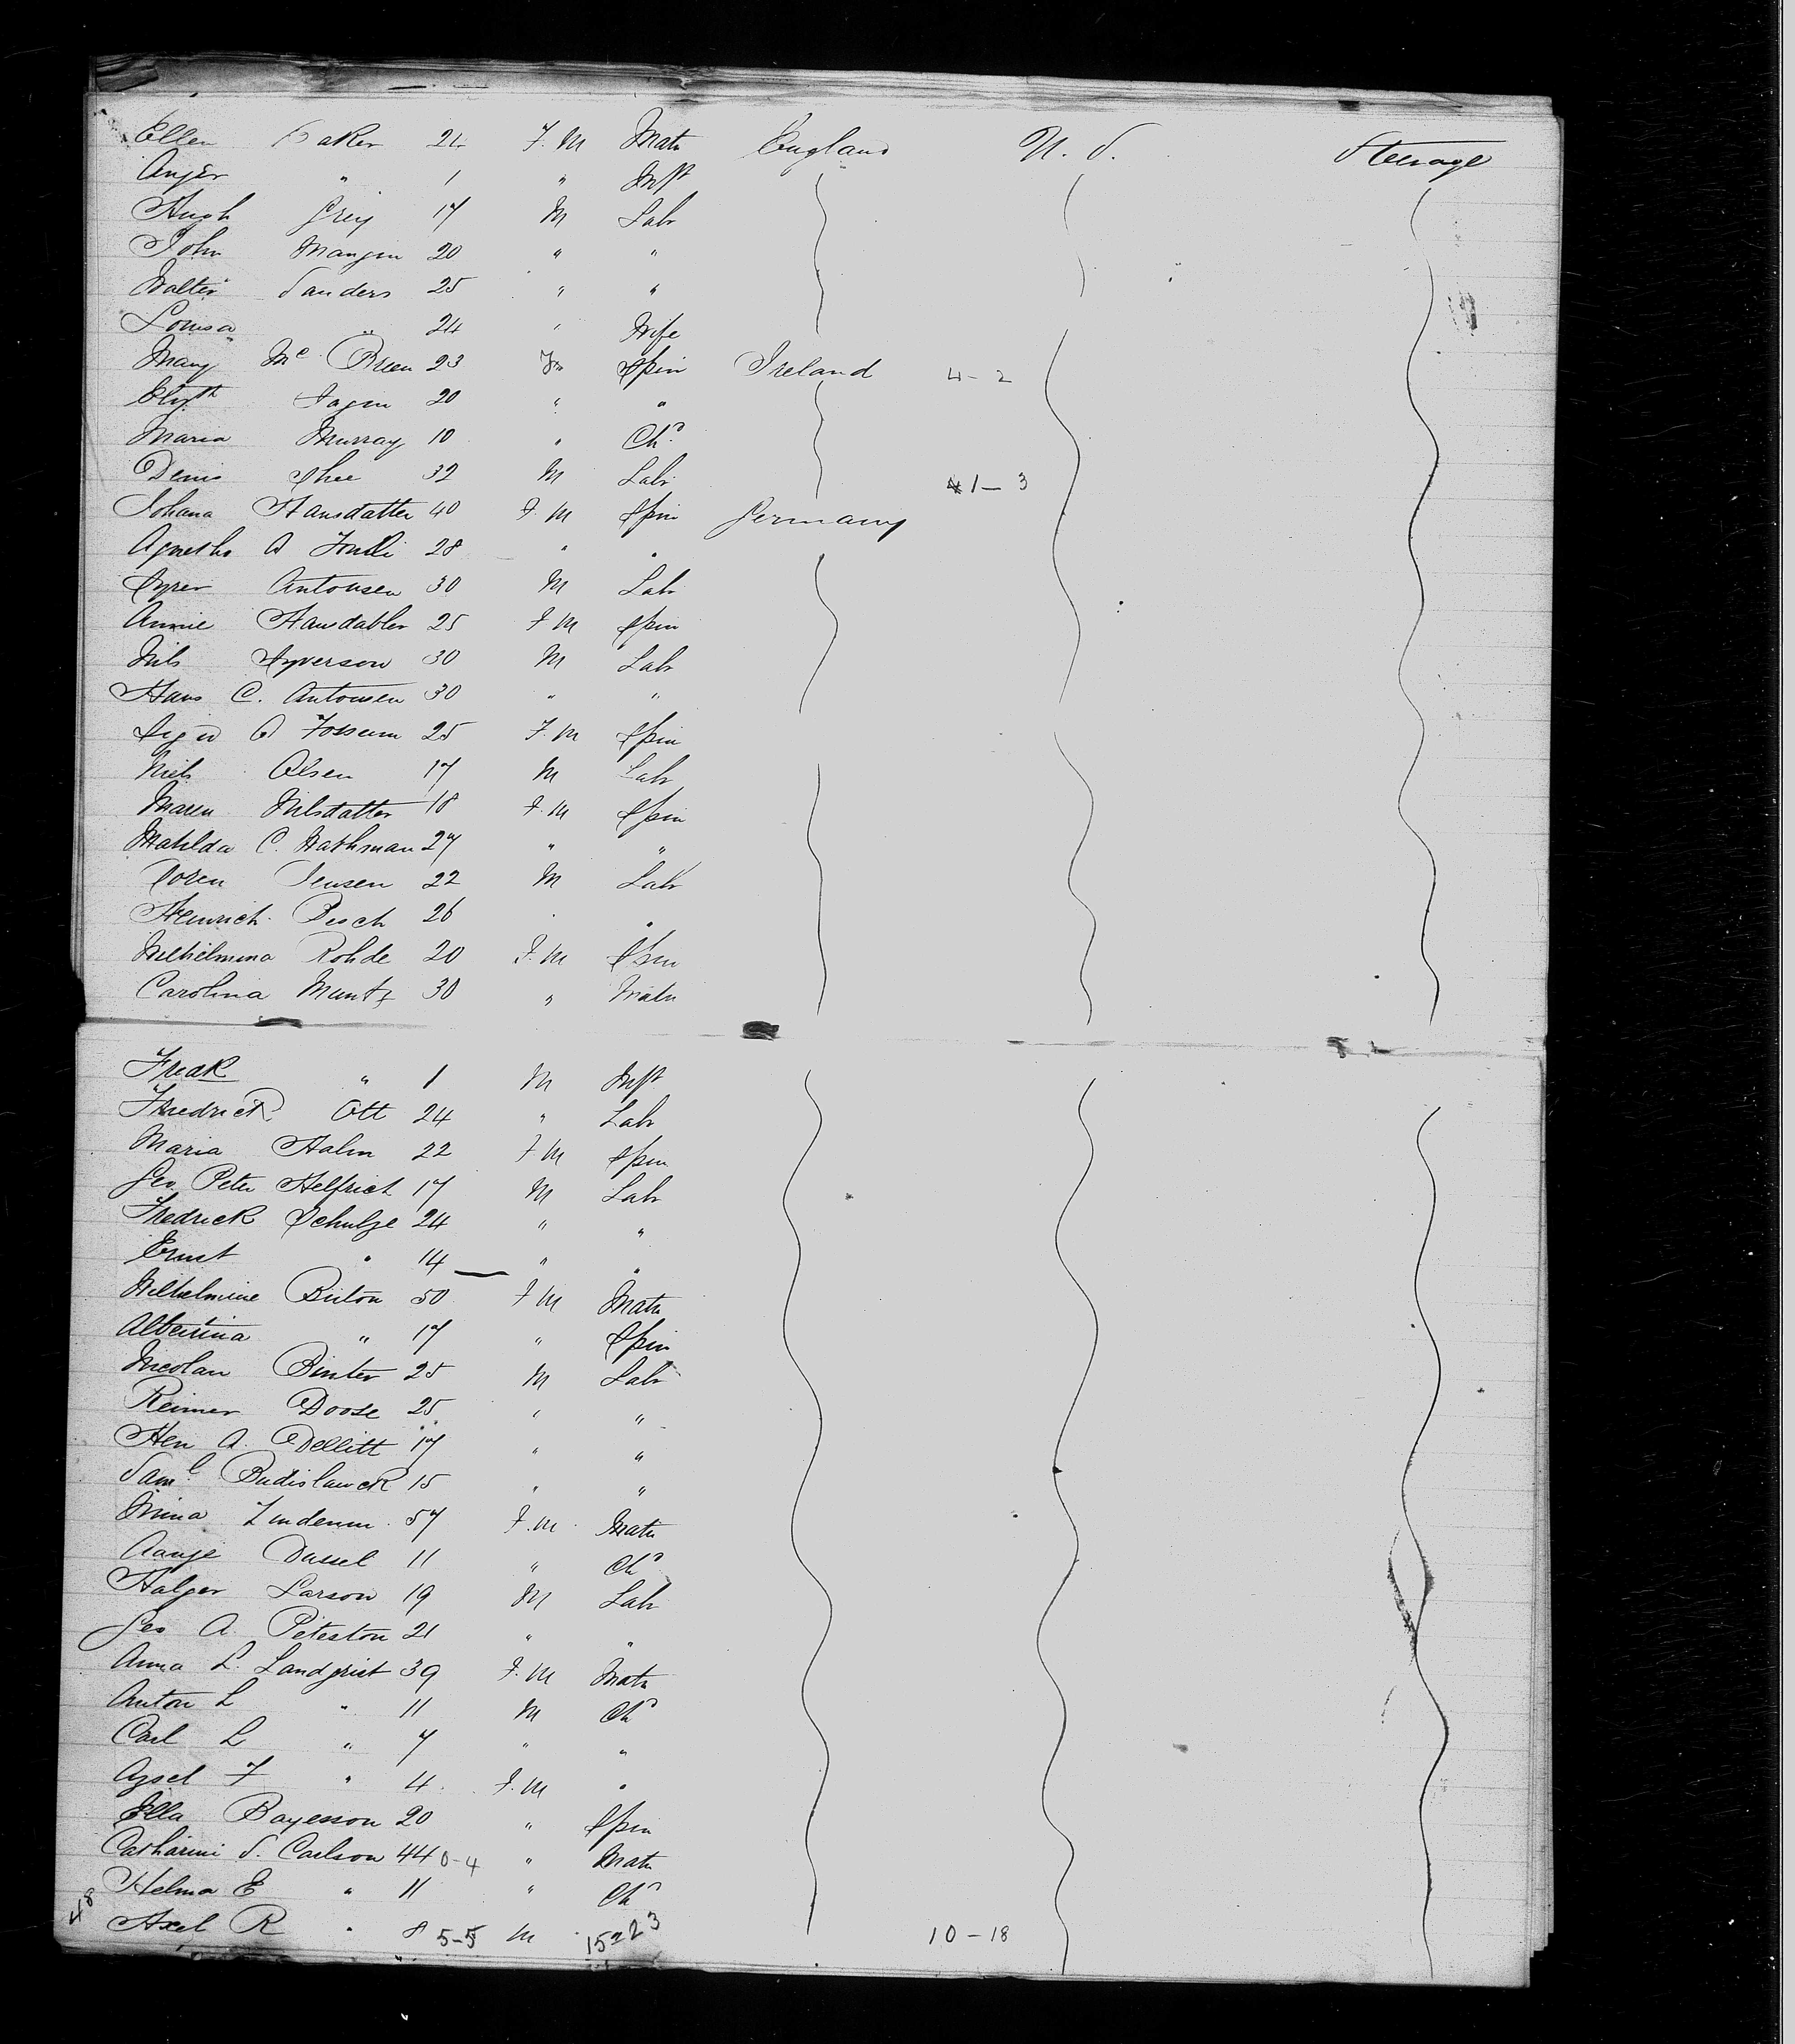 Ellen Baker 24 F.M Matn England U.S. Steerage
" 1 " Inft
Hugh Grey 17 M Labr
John Mangin 20 " "
Walter Sanders 25 " "
Louisa " 24 " Wife
Mary Mc Brien 23 Fm Spin Ireland 4-2
Elizth Fagan 20 " "
Maria Murray 10 " Chd
Denis Shee 32 M Labr 41-3
Johana Hansdatter 40 F.M Spin Germany
Agnethe A 28 " "
Antonsen 30 M Labr
Annie Hansdatter 25 F M Spin
Nils Syverson 30 M Labr
Hans C. Antonsen 30 " "
A Fossum 25 F.M Spin
Niels Olsen 17 M Labr
Maren Nilsdatter 18 F.M Spin
Matilda C. Wathman 27 " "
Soren Jensen 22 M Labr
Heinrich Pesch 26 " "
Wilhelmina Rohde 20 F.M Spin
Carolina Muntz 30 " Matn
Fredk " 1 M Inft
Fredrick Ott 24 " Labr
Maria Hahn 22 F M Spin
Geo. Peter Helfrich 17 M Labr
Fredrick Schulze 24 " "
Ernst " 14 " "
Wilhelmine 50 F M Matn
Albertina " 17 " Spin
Nicolau Binter 25 M Labr
Reimer Doose 25 " "
Hen A. Dellitt 17 " "
Saml Budislawck 15 " "
Mina Lindenm 57 F.M. Matn
Dassel 11 " Chd
Halger Larson 19 M Labr
Geo A. Peterson 21 " "
Anna L. Landgrist 39 F.M Matn
Anton L " 11 M Chd
Carl L " 7 " "
F " 4 F.M "
Ella Bayesson 20 " Spin
Catharine S. Carlson 44 0-4 " Matn
Helma E " 11 " Chd
48 Axel R " 8 5-5 M 15223 10-18